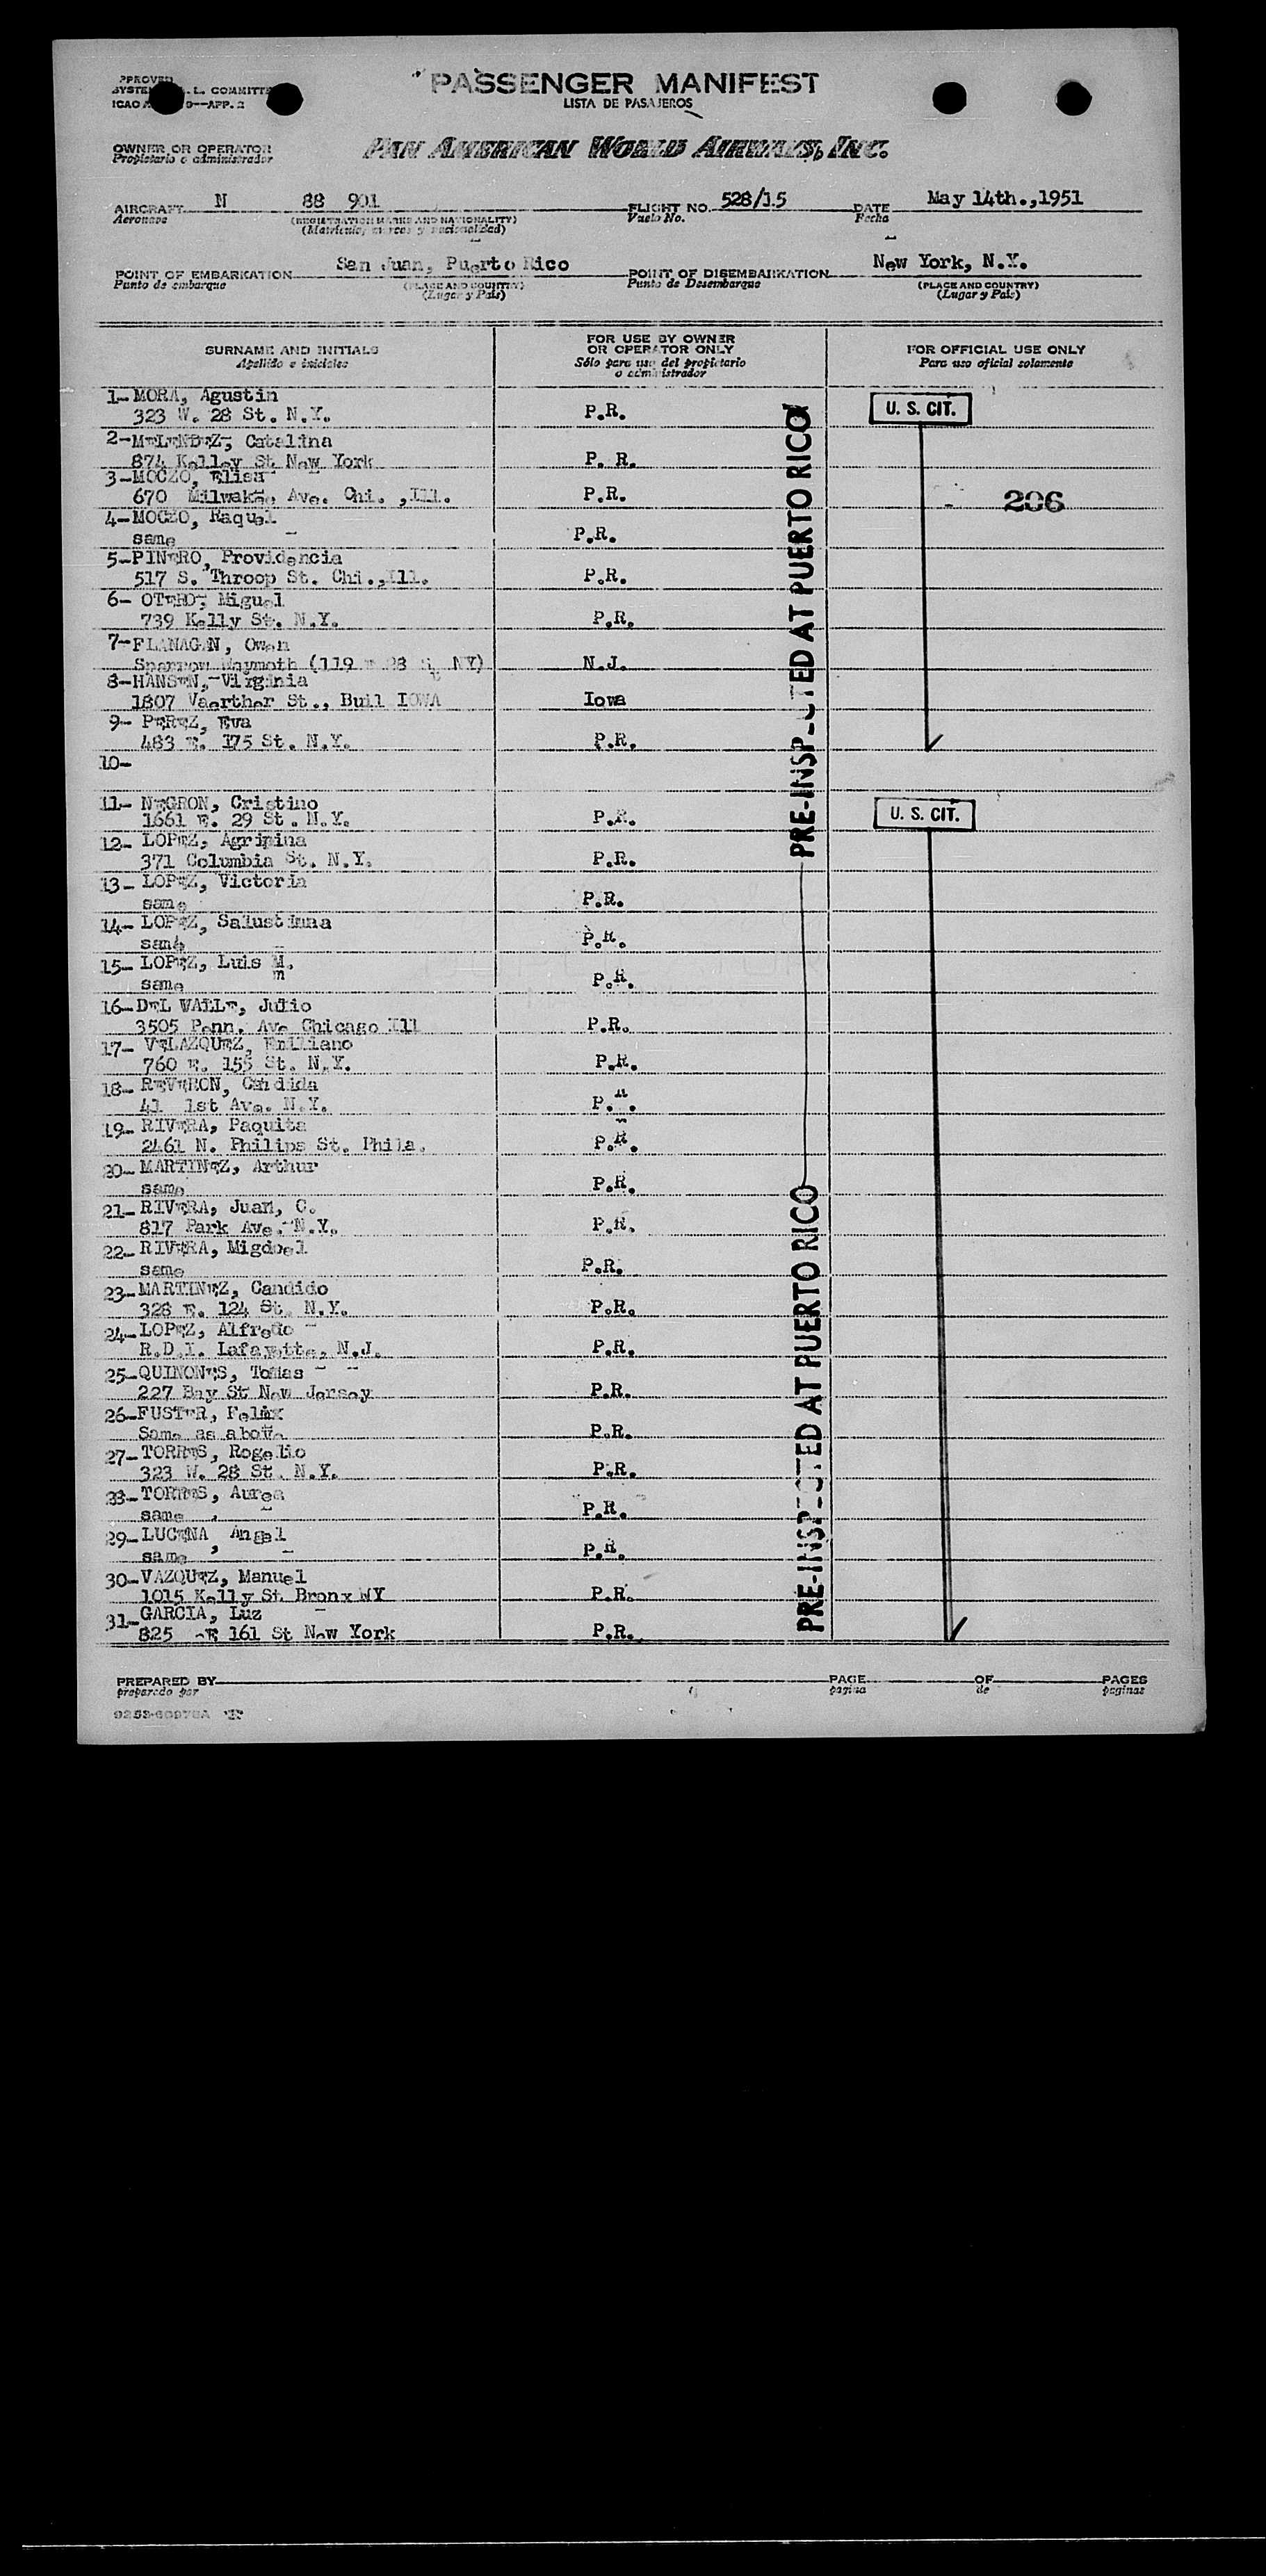 PASSENGER MANIFEST
LISTA DE PASAJEROS
OWNER OR OPERATOR
Propietario o administrador
PAN AMERICAN WORLD AIRWAYS, INC.
AIRCRAFT N 88 901 FLIGHT NO. 528/15 DATE May 14th.,1951
Aeronave (REGISTRATION MARKS AND NATIONALITY) Vuelo No. Fecha
(Matrícula, marcas y nacionalidad)
POINT OF EMBARKATION San Juan, Puerto Rico POINT OF DISEMBARKATION New York, N.Y.
Punto de embarque (PLACE AND COUNTRY) Punto de Desembarque (PLACE AND COUNTRY)
(Lugar y País) (Lugar y País)
SURNAME AND INITIALS FOR USE BY OWNER OR OPERATOR ONLY FOR OFFICIAL USE ONLY
Apellido e iniciales Sólo para uso del propietario o administrador Para uso oficial solamente
1-MORA, Agustin
323 W. 28 St. N.Y. P.R. U. S. CIT.
2-MELENDEZ, Catalina
874 Kelley St New York P. R.
3-MOCZO, Elisa
670 Milwake, Ave. Chi. ,Ill. P.R. 206
4-MOCZO, Raquel
same P.R.
5-PINERO, Providencia
517 S. Throop St. Chi.,Ill. P.R.
6- OTERO, Miguel
739 Kelly St. N.Y. P.R.
7-FLANAGAN, Owen
Sparrow Waymoth (119 E 28 S NY) N.J.
8-HANSEN, Virginia
1807 Vaerther St., Buil IOWA Iowa
9- PEREZ, Eva
483 E. 175 St. N.Y. P.R.
10-
11- NEGRON, Cristino
1661 E. 29 St. N.Y. P.R. U. S. CIT.
12- LOPEZ, Agripina
371 Columbia St. N.Y. P.R.
13- LOPEZ, Victoria
same P.R.
14- LOPEZ, Salustinna
same P.R.
15- LOPEZ, Luis M.
same P.R.
16-DEL VALLE, Julio
3505 Penn. Ave Chicago Ill P.R.
17- VELAZQUEZ, Emiliano
760 E. 155 St. N.Y. P.R.
18- REVERON, Candida
41 1st Ave. N.Y. P.R.
19- RIVERA, Paquita
2461 N. Philips St. Phila. P.R.
20- MARTINEZ, Arthur
same P.R.
21- RIVERA, Juan, C.
817 Park Ave. N.Y. P.R.
22- RIVERA, Migdoel
same P.R.
23-MARTINEZ, Candido
328 E. 124 St. N.Y. P.R.
24-LOPEZ, Alfredo
R.D.I. Lafayette, N.J. P.R.
25-QUINONES, Tomas
227 Bay St New Jersey P.R.
26-FUSTER, Felix
Same as above P.R.
27-TORRES, Rogelio
323 W. 28 St. N.Y. P.R.
28-TORRES, Aurea
same P.R.
29-LUCENA, Angel
same P.R.
30-VAZQUEZ, Manuel
1015 Kelly St Bronx NY P.R.
31-GARCIA, Luz
825 E 161 St New York P.R.
PRE-INSPECTED AT PUERTO RICO
PRE-INSPECTED AT PUERTO RICO
PREPARED BY PAGE OF PAGES
preparado por página de páginas